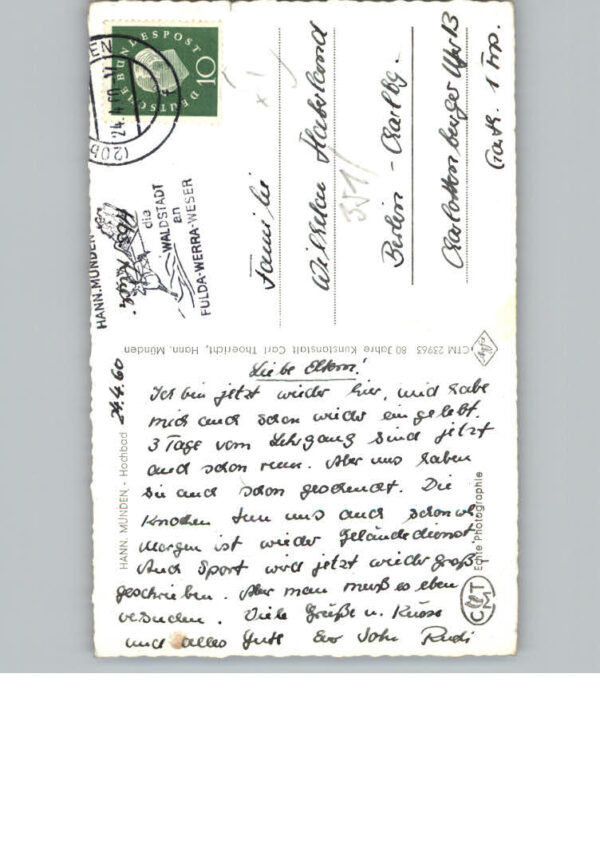 DEUTSCHE BUNDESPOST
10
24.4.60
(20b)
HANN. MÜNDEN
die
WALDSTADT
an
FULDA-WERRA-WESER
Familie
Wilhelm Haberland
Berlin - Charlbg.
Charlottenburger Ufer 13
Garth. 1 Trp.
CTM 23963 80 Jahre Kunstanstalt Carl Thoericht, Hann. Münden
HANN. MÜNDEN - Hochbad
24.4.60
Liebe Eltern!
Ich bin jetzt wieder hier, und habe
mich auch schon wieder eingelebt.
3 Tage vom Lehrgang sind jetzt
auch schon rum. Aber uns haben
sie auch schon gescheucht. Die
Knochen tun uns auch schon weh
Morgen ist wieder Geländedienst
Auch Sport wird jetzt wieder groß
geschrieben. Aber man muß es eben
versuchen. Viele Grüße u. Küsse
und alles Gute Euer Sohn Rudi
Echte Photographie
CTM